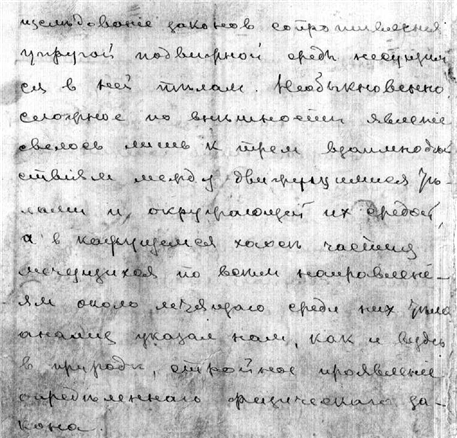 изслѣдованiе законовъ сопротивленiя
упругой подвижной среды несущим
ся в ней тѣлам. Необыкновенно
сложное по внѣшности явленiе
свелось лишь к трем взаимодѣй
ствiям между движущимися тѣ-
лами и окружающей их средой,
а в кажущемся хаосѣ частиц
мечущихся по всѣм направленi-
ям около летящаго среди них тѣла
анализ указал нам, как и вездѣ
в природѣ, стройное проявленiе
опредѣленнаго физическаго за-
кона.